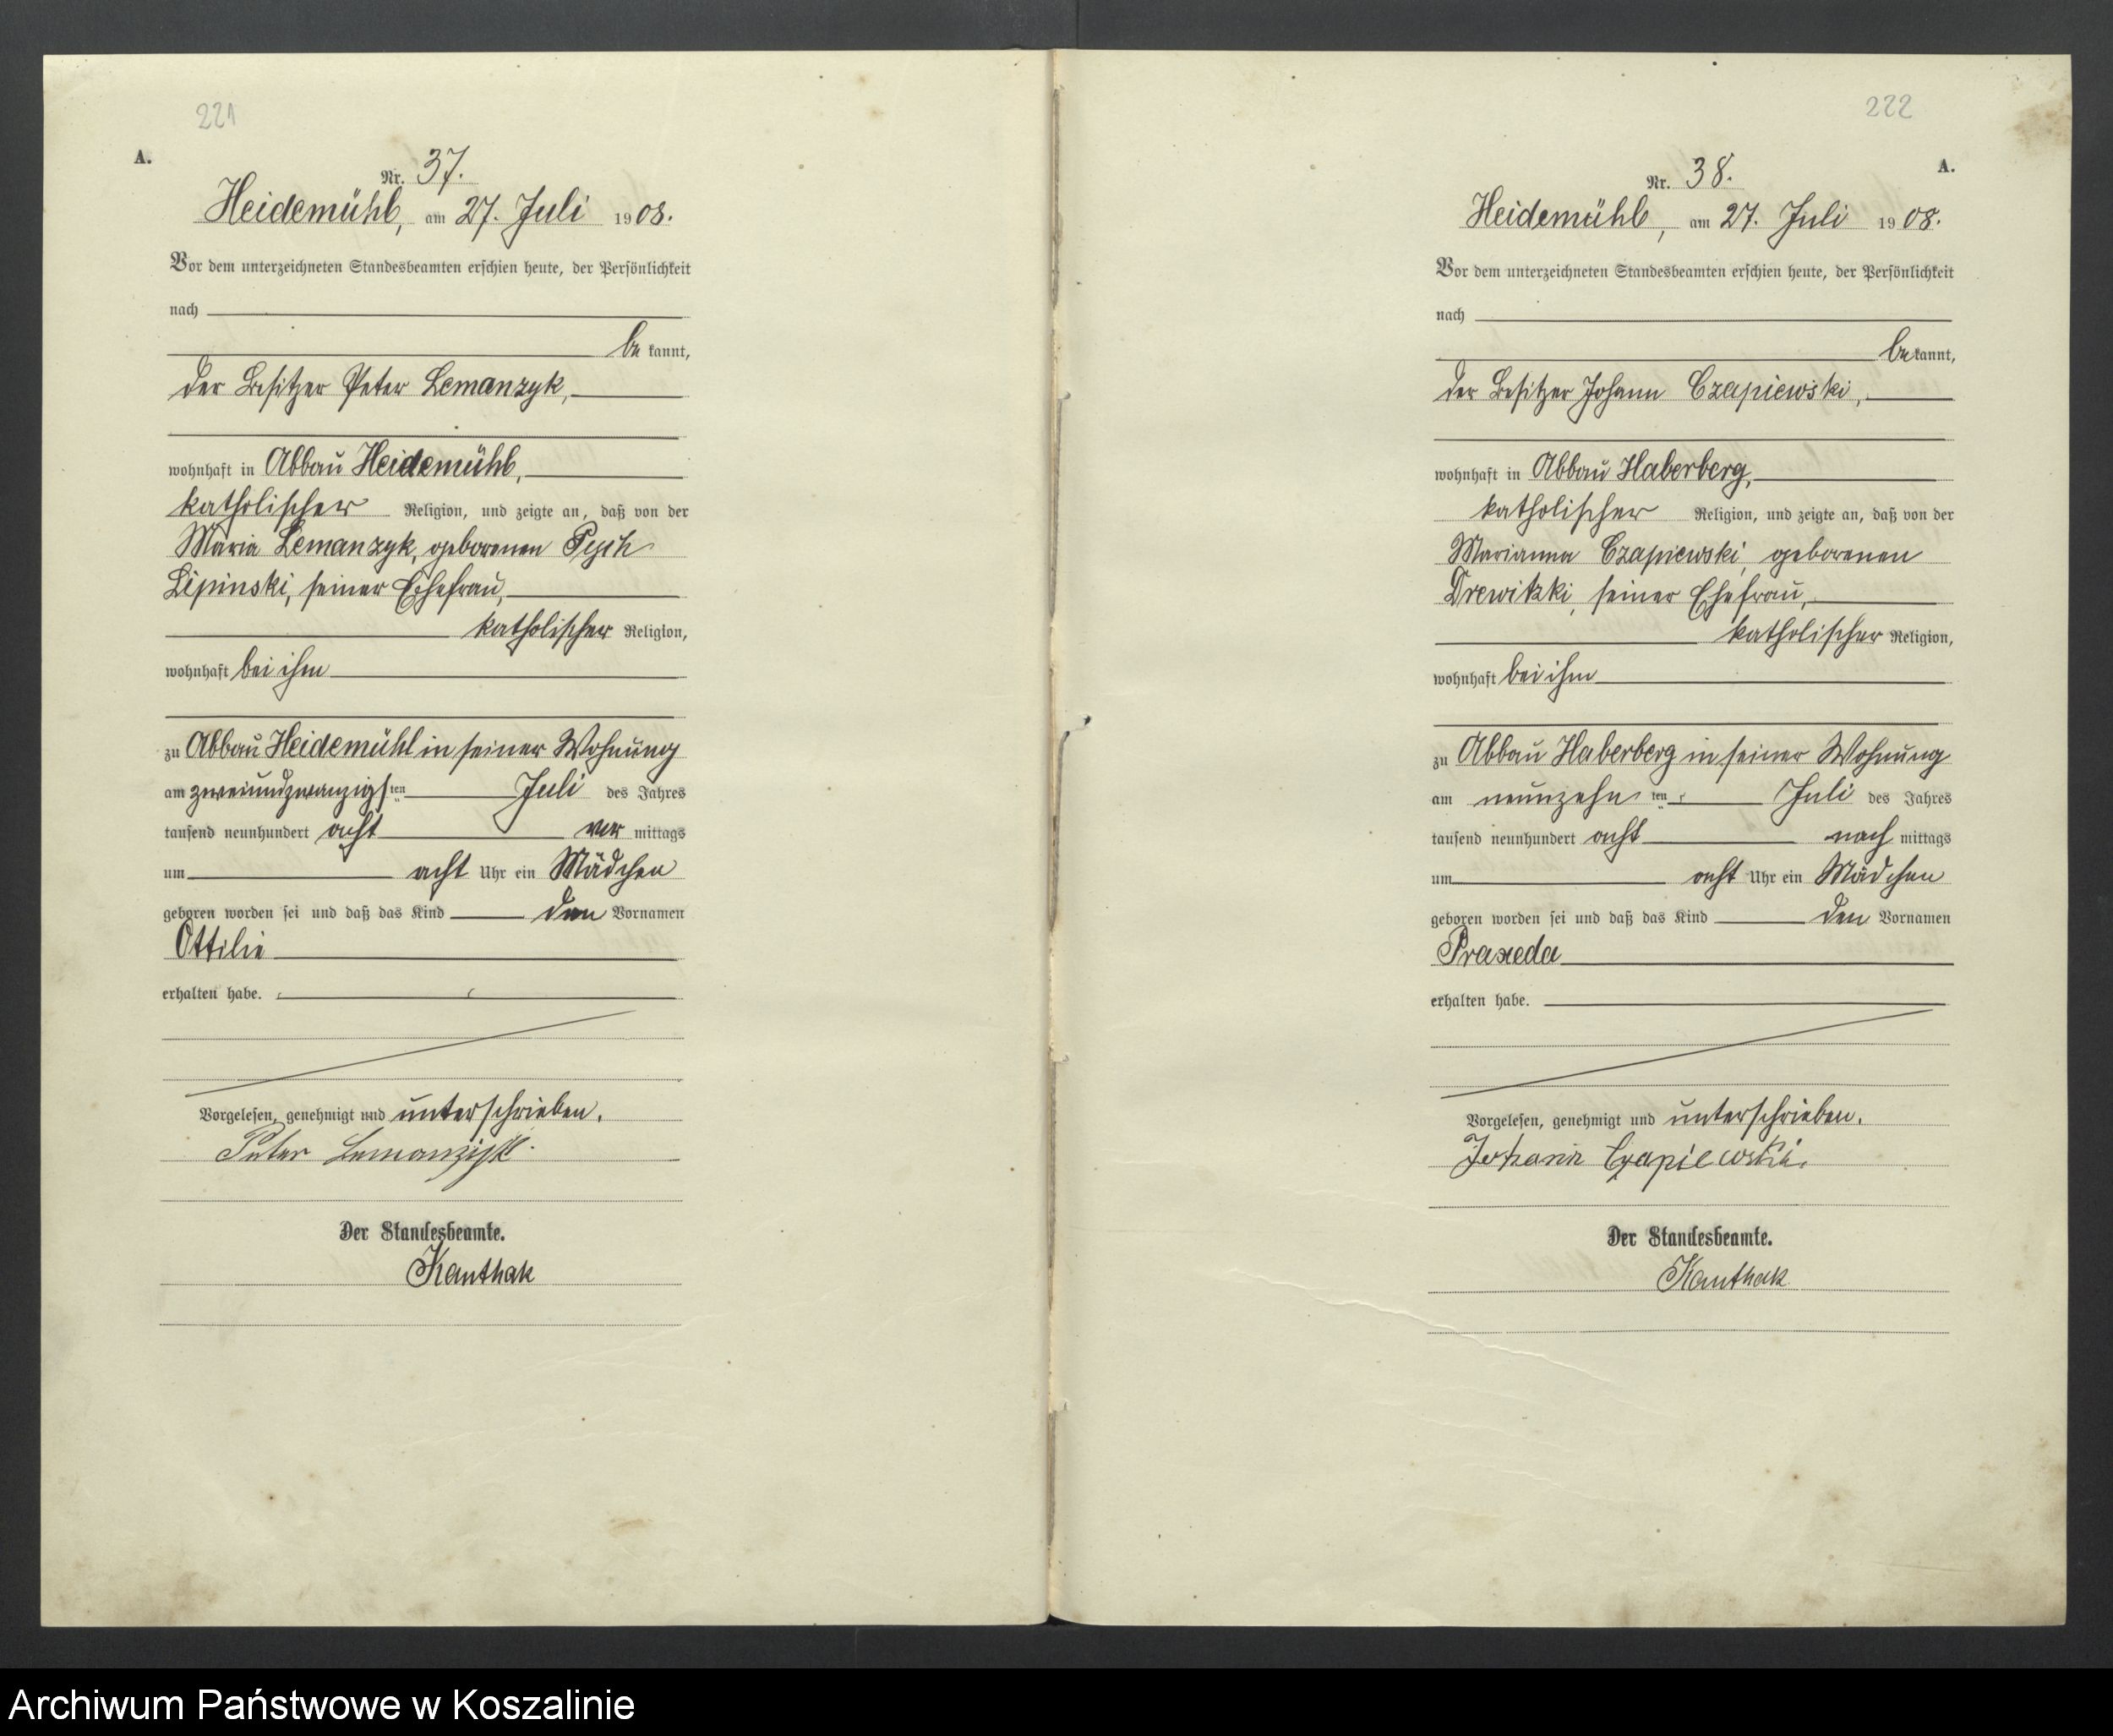 221
A.
Nr. 37.
Heidemühl, am 27. Juli 1908.
Vor dem unterzeichneten Standesbeamten erschien heute, der Persönlichkeit
nach
be kannt,
der Besitzer Peter Lemanzyk,
wohnhaft in Abbau Heidemühl,
katholischer Religion, und zeigte an, daß von der
Maria Lemanzyk, geborenen Pych
Lipinski, seiner Ehefrau,
katholischer Religion,
wohnhaft bei ihm
zu Abbau Heidemühl in seiner Wohnung
am zweiundzwanzigsten Juli des Jahres
tausend neunhundert acht vor mittags
um acht Uhr ein Mädchen
geboren worden sei und daß das Kind den Vornamen
Ottilie
erhalten habe.
Vorgelesen, genehmigt und unterschrieben.
Peter Lemanzyk.
Der Standesbeamte.
Kanthak
222
A.
Nr. 38.
Heidemühl, am 27. Juli 1908.
Vor dem unterzeichneten Standesbeamten erschien heute, der Persönlichkeit
nach
be kannt,
der Besitzer Johann Czapiewski,
wohnhaft in Abbau Haberberg,
katholischer Religion, und zeigte an, daß von der
Marianna Czapiewski, geborenen
Drewitzki, seiner Ehefrau,
katholischer Religion,
wohnhaft bei ihm
zu Abbau Haberberg in seiner Wohnung
am neunzehnten Juli des Jahres
tausend neunhundert acht nach mittags
um acht Uhr ein Mädchen
geboren worden sei und daß das Kind den Vornamen
Praxeda
erhalten habe.
Vorgelesen, genehmigt und unterschrieben.
Johann Czapiewski.
Der Standesbeamte.
Kanthak
Archiwum Państwowe w Koszalinie